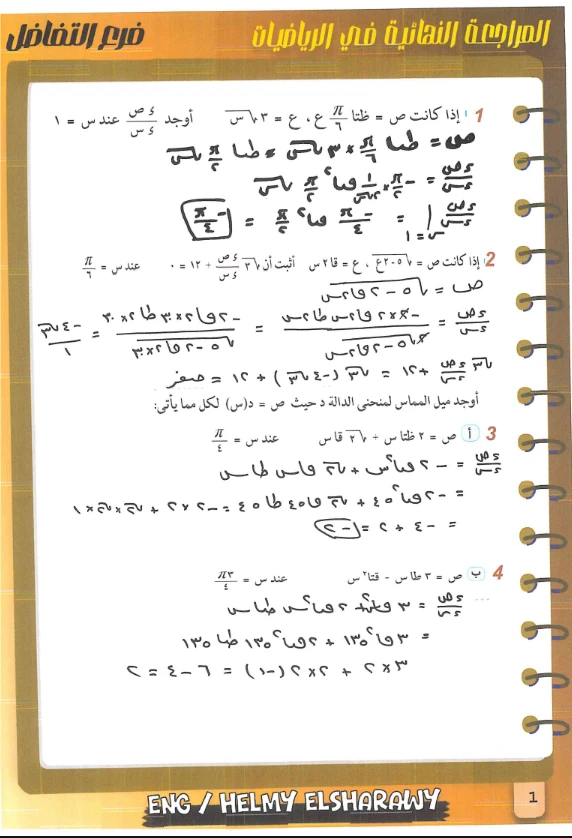 المراجعة النهائية في الرياضيات
فرع التفاضل
1 إذا كانت ص = ظتا π/٦ ع ، ع = ٣√س أوجد ءص/ءس عند س = ١
ص = طتا π/٦ × ٣√س = طتا π/٢ √س
ءص/ءس = -π/٢ × ١/٢√س قتا² π/٢ √س
ءص/ءس | س=١ = -π/٤ قتا² π/٢ = -π/٤
2 إذا كانت ص = √(٥-٢ع) ، ع = قا٢س أثبت أن √٣ ءص/ءس + ١٢ = ٠ عند س = π/٦
ص = √(٥ - ٢قا٢س)
ءص/ءس = -٢×٢قا٢س طا٢س / √(٥-٢قا٢س) = -٢قا٢×٣٠ طا٢×٣٠ / √(٥-٢قا٢×٣٠) = -٤√٣/١
√٣ ءص/ءس + ١٢ = √٣ (-٤√٣) + ١٢ = صفر
أوجد ميل المماس لمنحنى الدالة د حيث ص = د(س) لكل مما يأتى:
3 أ ص = ٢ ظتاس + √٢ قاس عند س = π/٤
ءص/ءس = -٢قتا²س + √٢ قاس طاس
= -٢قتا²٤٥ + √٢ قا٤٥ طا٤٥ = -٢×٢ + √٢×√٢×١
= -٤ + ٢ = -٢
4 ب ص = ٣ طاس - قتا²س عند س = ٣π/٤
ءص/ءس = ٣قا²س + ٢قتا²س طتاس
= ٣قا²١٣٥ + ٢قتا²١٣٥ طتا١٣٥
٣×٢ + ٢×٢(-١) = ٦-٤ = ٢
ENG / HELMY ELSHARAWY
1